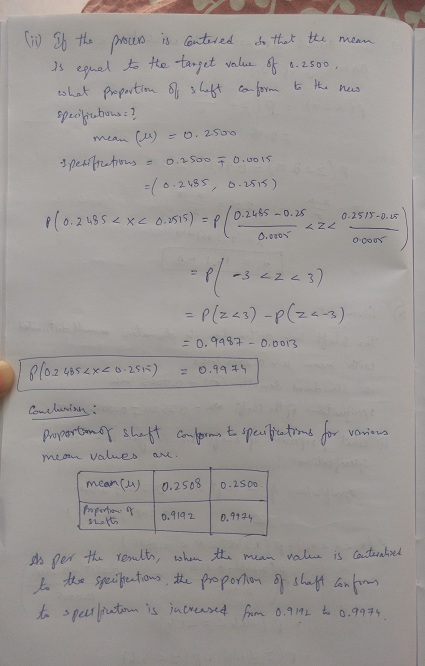 (ii) If the process is centered so that the mean
is equal to the target value of 0.2500,
what proportion of shaft conform to the new
specifications=?
mean (μ) = 0.2500
specifications = 0.2500 ∓ 0.0015
=(0.2485, 0.2515)
P(0.2485 < X < 0.2515) = P( (0.2485 - 0.25)/0.0005 < Z < (0.2515 - 0.25)/0.0005 )
= P( -3 < Z < 3)
= P(Z<3) - P(Z<-3)
= 0.9987 - 0.0013
P(0.2485<X<0.2515) = 0.9974
Conclusion:
Proportion of shaft conforms to specifications for various
mean values are.
mean(μ) 0.2508 0.2500
Proportion of shafts 0.9192 0.9974
As per the results, when the mean value is centralised
to the specifications, the proportion of shaft conform
to specification is increased from 0.9192 to 0.9974.